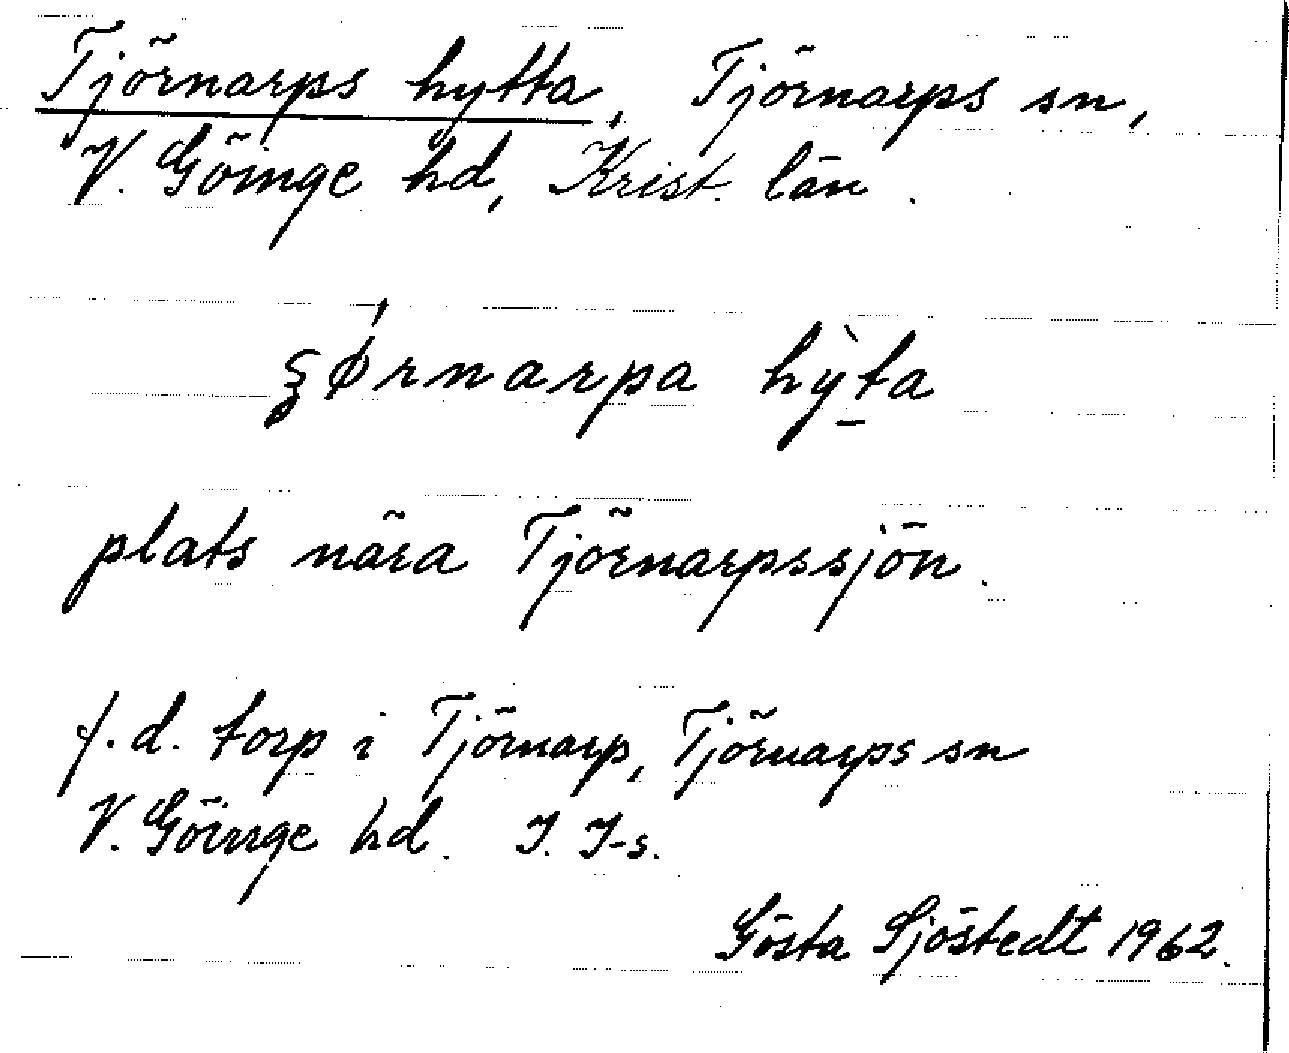 Tjörnarps hytta, Tjörnarps sn,
V. Göinge hd, Krist. län.
ʂǿrnarpa hỳta
plats nära Tjörnarpssjön.
f.d. torp i Tjörnarp, Tjörnarps sn
V. Göinge hd. J. J-s.
Gösta Sjöstedt 1962.